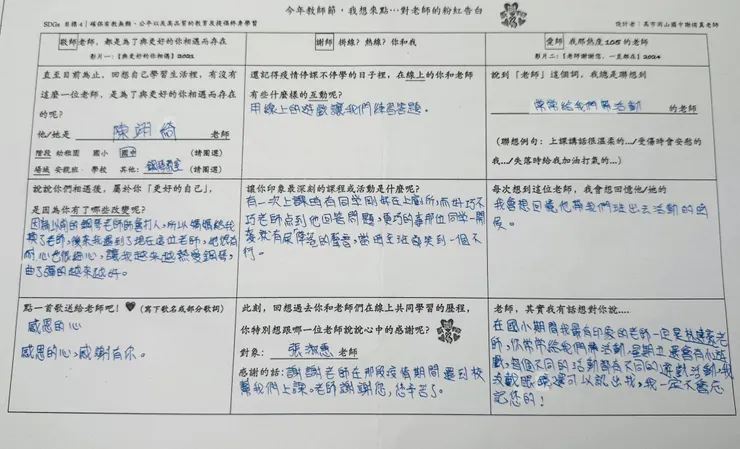 今年教師節，我想來點…對老師的粉紅告白
SDGs 目標 4｜確保有教無類、公平以及高品質的教育及提倡終身學習
設計者：高市岡山國中謝侑真老師
敬師 老師，都是為了與更好的你相遇而存在
影片一：【與更好的你相遇】2021
直至目前為止，回想自己學習生活裡，有沒有
這麼一位老師，是為了與更好的你相遇而存在
的呢?
他/她是 陳翊綺 老師
階段 幼稚園 國小 國中 (請圈選)
場域 安親班 學校 其他: 鋼琴教室 (請圈選)
說說你們相遇後，屬於你「更好的自己」，
是因為你有了哪些改變呢?
因為以前的鋼琴老師會打人，所以媽媽給我
換了老師，後來我遇到了現在這位老師，他很有
耐心也很細心，讓我越來越熱愛鋼琴，
曲子彈的越來越好。
點一首歌送給老師吧! (寫下歌名或部分歌詞)
感恩的心
感恩的心，感謝有你。
謝師 掛線? 熱線? 你和我
還記得疫情停課不停學的日子裡，在線上的你和老師
有些什麼樣的互動呢?
用線上的遊戲讓我們練習答題。
讓你印象最深刻的課程或活動是什麼呢?
有一次上課時有同學剛好在上廁所，而好巧不
巧老師點到他回答問題，更巧的事那位同學一開
麥就有尿 的聲音，當時全班都笑到一個不
行。
此刻，回想過去你和老師們在線上共同學習的歷程，
你特別想跟哪一位老師說說心中的感謝呢?
對象: 張淑惠 老師
感謝的話: 謝謝老師在那段疫情期間還到校
幫我們上課。老師謝謝您，您辛苦了。
愛師 我那熱度 105 的老師
影片二：【老師謝謝您，一直都在】2024
說到「老師」這個詞，我總是聯想到
常常給我們帶活動 的老師
(聯想例句：上課講話很溫柔的…/受傷時會安慰的
我…/失落時給我加油打氣的…)
每次想到這位老師，我會想回憶他/她的
我會想回憶他帶我們班出去活動的時
候。
老師，其實我有話想對你說....
在國小期間我最有印象的老師一定是 老
師，你常常給我們帶活動，星期五還會有小遊
戲，每個不同的活動都有不同的遊戲活動，我
沒戴眼鏡還可以認出我，我一定不會忘
記您的!